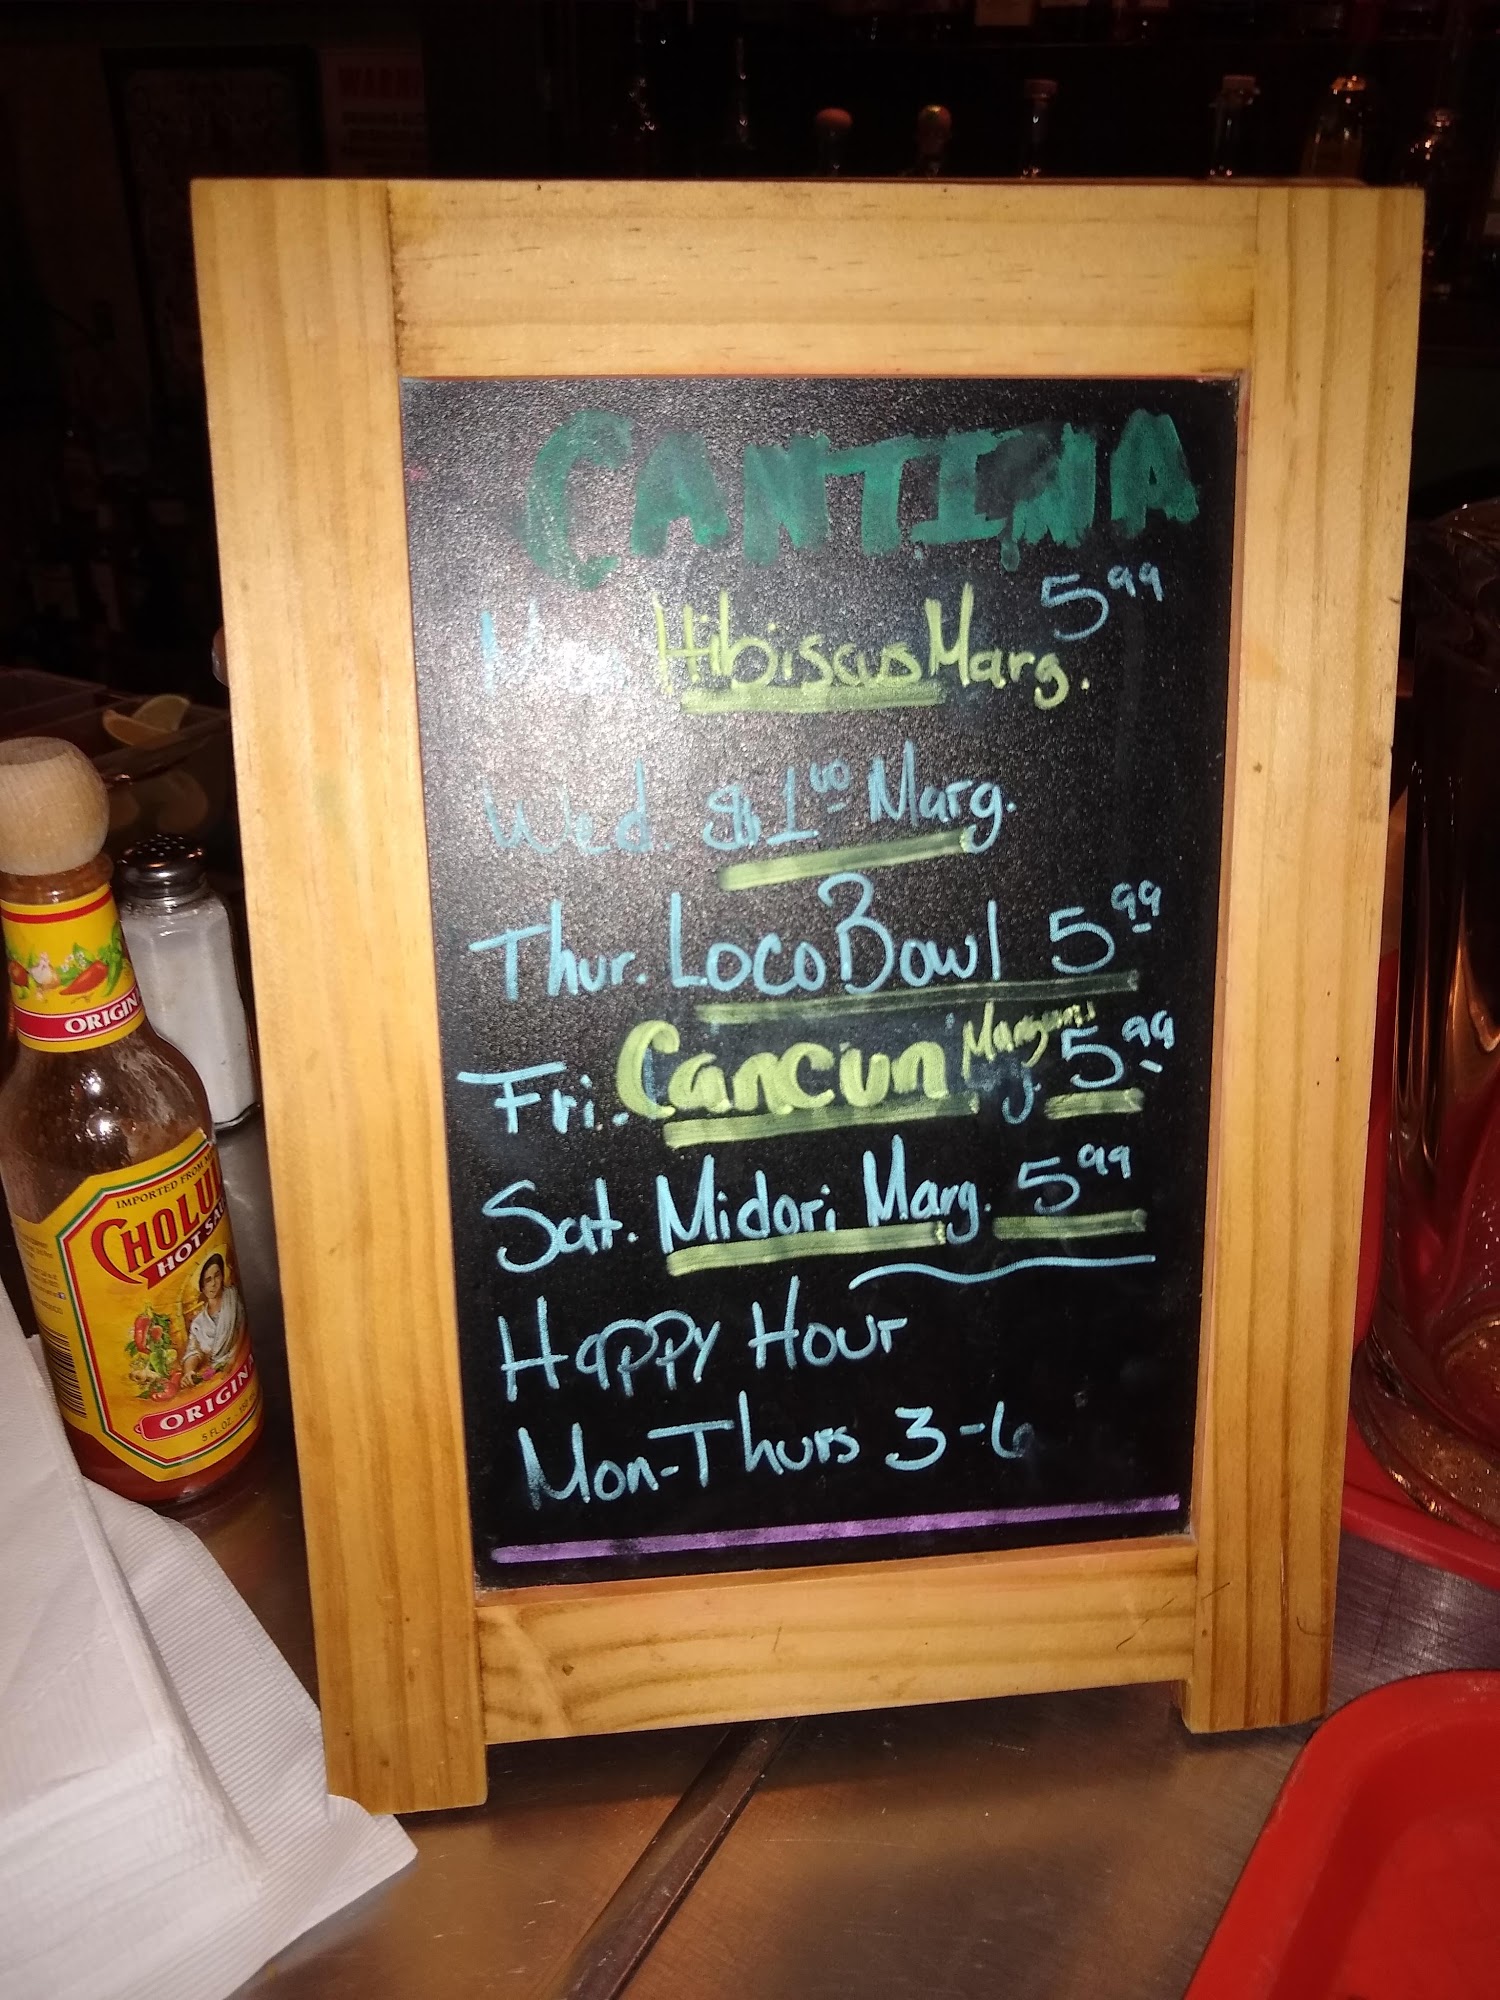 CANTINA
Mon. Hibiscus Marg. 5.99
Wed. $1.00 Marg.
Thur. Loco Bowl 5.99
Fri. Cancun 5.99
Sat. Midori Marg. 5.99
Happy Hour
Mon-Thurs 3-6
ORIGIN
IMPORTED FROM
CHOLU
HOT SAU
ORIGINA
5 FL. OZ.
WARNI